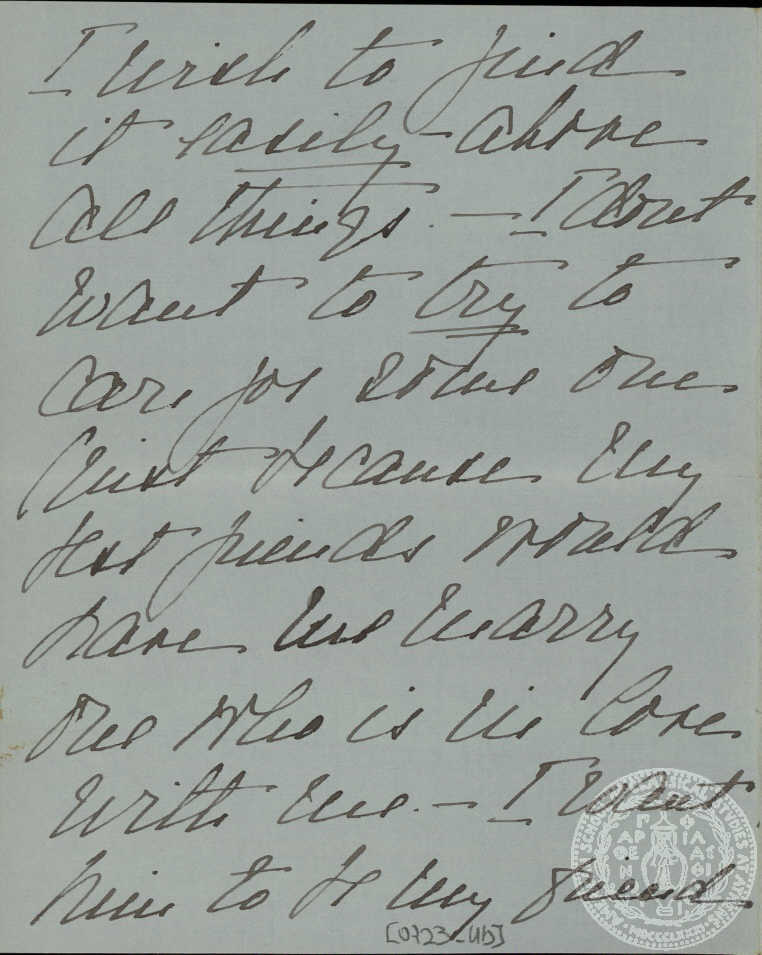 I wish to find
it easily - above
all things. - I dont
want to try to
care for some one
just because my
best friends would
have me marry
one who is in love
with me. - I want
him to be my friend
[0723-4b]